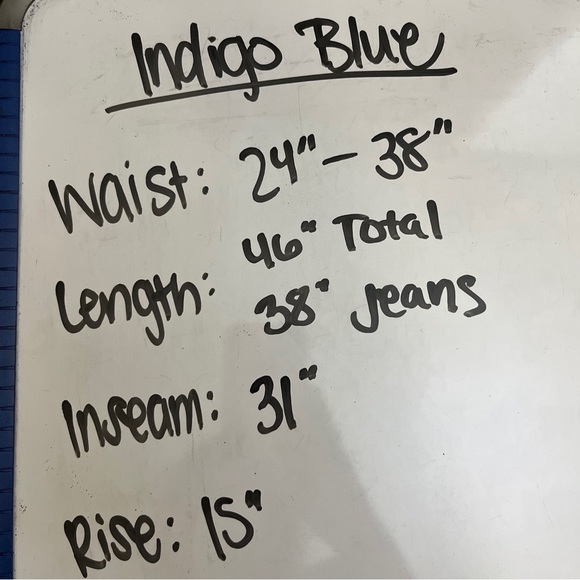 Indigo Blue
Waist: 24" - 38"
Length: 46" Total
38" Jeans
Inseam: 31"
Rise: 15"